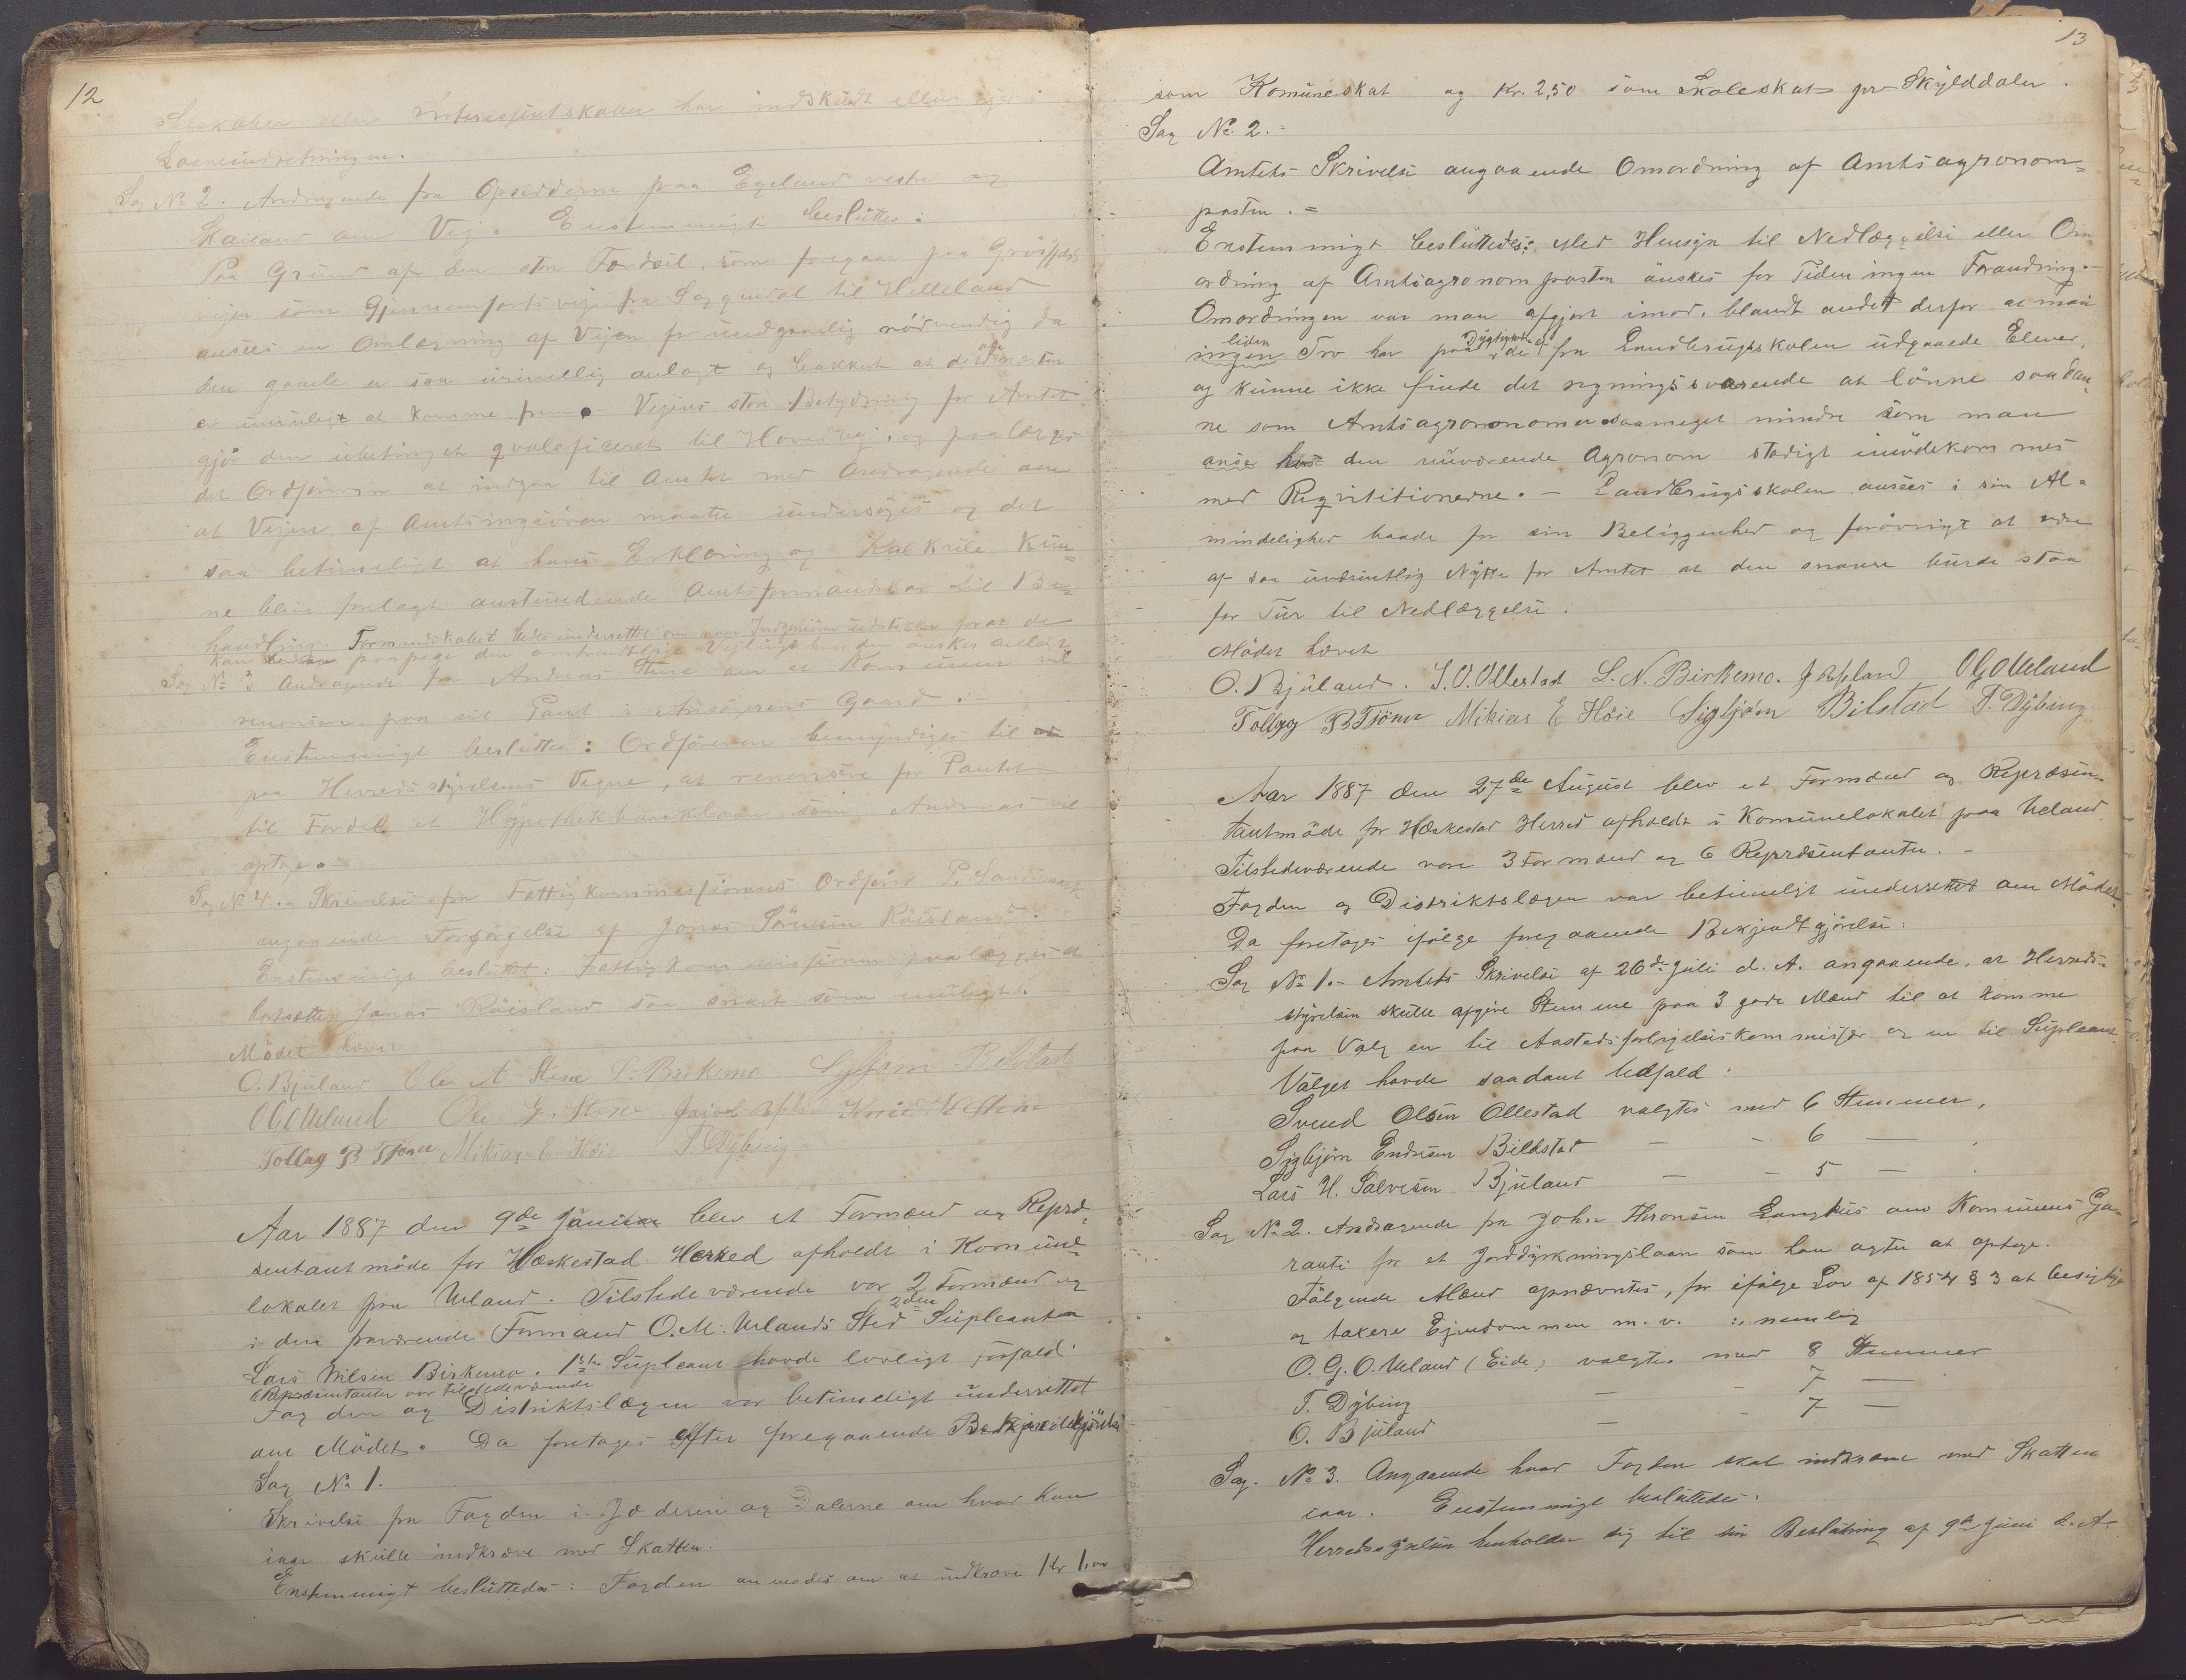 12
Selskaber eller Interesentskaber har indskudt eller ejer i
Laaneindretningen.
Sag No 2. Andragende fra Opsidderne paa Egeland vestre og
Skailand om Vej. Enstemmigt besluttes:
Paa Grund af den store Færdsel, som foregaar paa
vejen som Gjennemfartsvej fra Soggendal til Helleland
ansees en Omlægning af Vejen for uundgaaelig nødvendig da
den gamle er saa urimellig anlagt og bakket at det ofte næsten
er umuligt at komme frem. Vejens store Betydning for Amtet
gjör den ubetinget qvalificeret til Hovedvej, og paalægges
det Ordføreren at indgaa til Amtet med Andragende om
at Vejen af Amtsingeniören maatte undersøges og det
saa betimeligt at hans Erklæring og Kalkule Kun¬
ne blive forelagt anstundende Amtsformandskab til Be¬
handling. Formandskabet bedes underrettet om naar Ingeniören udstikker for at de
kan paapege den omtrentlige Vejlinje hvor den ønskes anlagt
Sag No 3 Andragende fra Andreas Stene om at Kommunen vil
renonsere paa sit Pant i Ansøgerens Gaard.
Enstemmigt besluttes: Ordföreren bemyndiges til at
paa Herredsstyrelsens Vegne, at renonsere for Pantet
til Fordel et Hypothekbanklaan som Andreas vil
optage.
Sag No 4. Skrivelse fra Fattigkommissionens Ordförer P.
angaaende Forsørgelse af Jonas Sörensen Röisland.
Enstemmigt besluttet: Fattigkommissionen paalægges at
bortsætte Jonas Röisland saa snart som muligt.
Mödet hævet
O. Bjuland Ole A Stene L. Birkemo Sigbjørn Bilstad
O G O Ueland Ole G. Jacob
Tollag B Tjörn Mikias E. Höie T. Dybing
Aar 1887 den 9de Juni blev et Formænd og Repræ¬
sentantmöde for Hæskestad Herred afholdt i Komune¬
lokalet paa Ueland. Tilstedeværende var 2 Formænd og
i den fraværende Formand O. M. Uelands Sted 2den Supleanten
Lars Nilsen Birkemo. 1ste Supleant havde lovligt Forfald.
6 Repræsentanter var tilstedeværende
Fogden og Distriktslægen var betimeligt underrettet
om Mödet. Da foretages efter foregaaende Bekjendtgjörelse
Sag No 1.
Skrivelse fra Fogden i Jæderen og Dalerne om hvad han
iaar skulle indkræve med Skatten.
Enstemmigt besluttedes: Fogden anmodes om at indkræve Kr 1,00
13
som Komuneskat og Kr. 2,50 som Skoleskat pr Skylddaler.
Sag No 2.
Amtets Skrivelse angaaende Omordning af Amtsagronom=
posten.=
Enstemmigt besluttedes: Med Hensyn til Nedlæggelse eller Om
ordning af Amtsagronomposten önskes for Tiden ingen Forandring.
Omordningen var man afgjort imod, blandt andet derfor at man
liden
ingen Tro har paa Dygtighed af de fra Landbrugsskolen udgaaede Elever,
og kunne ikke finde det regningssvarende at lönne saadan¬
ne som Amtsagrononomer saameget mindre som man
anser hos den nuværende Agronom stadigt imödekommes
med Reqvisitionerne. – Landbrugsskolen ansees i sin Al=
mindelighed baade for sin Beliggenhed og forövrigt at være
af saa uvæsentlig Nytte for Amtet at den snarere burde staa
for Tur til Nedlæggelse.
Mödet hævet
O. Bjuland. S. O. Ollestad L. N. Birkemo. O G O Ueland
Tollag B Tjörn Mikias E Höie Sigbjørn Bilstad T. Dybing
Aar 1887 den 27de August blev et Formænd og Repræsen¬
tantmöde for Hæskestad Herred afholdt i Komunelokalet paa Ueland.
Tilstedeværende vare 3 Formænd og 6 Repræsentanter. –
Fogden og Distriktslægen var betimeligt underrettet om Mödet.
Da foretages ifölge foregaaende Bekjendtgjörelse:
Sag No 1.- Amtets Skrivelse af 26de Juli d. A. angaaende, at Herreds=
styrelsen skulle afgive Stemme paa 3 gode Mænd til at komme
paa Valg en til Aastedsforligelseskommissær og en til Supleant.
Valget havde saadant Udfald:
Svend Olsen Ollestad valgtes med 6 Stemmer,
Sigbjörn Endresen Bildstad – – 6 –
Lars H. Salvesen Bjuland – – 5 –
Sag No 2. Andragende fra John Thronsen Langhus om Kommunens Ga¬
ranti for et Jorddyrkningslaan som han agter at optage.
Fölgende Mænd opnævntes, for ifölge Lov af 1854 § 3 at besigtige
og taxere Ejendommen m. v. :, nemlig
O. G. O. Ueland (Eide) valgtes med 8 Stemmer
T. Dybing – – 7 –
O. Bjuland – – 7 –
Sag. No 3. Angaaende hvad Fogden skal indkræve med Skatten
iaar. Enstemmigt besluttedes:
Herredsstyrelsen henholder sig til sin Beslutning af 9de Juni d. A.